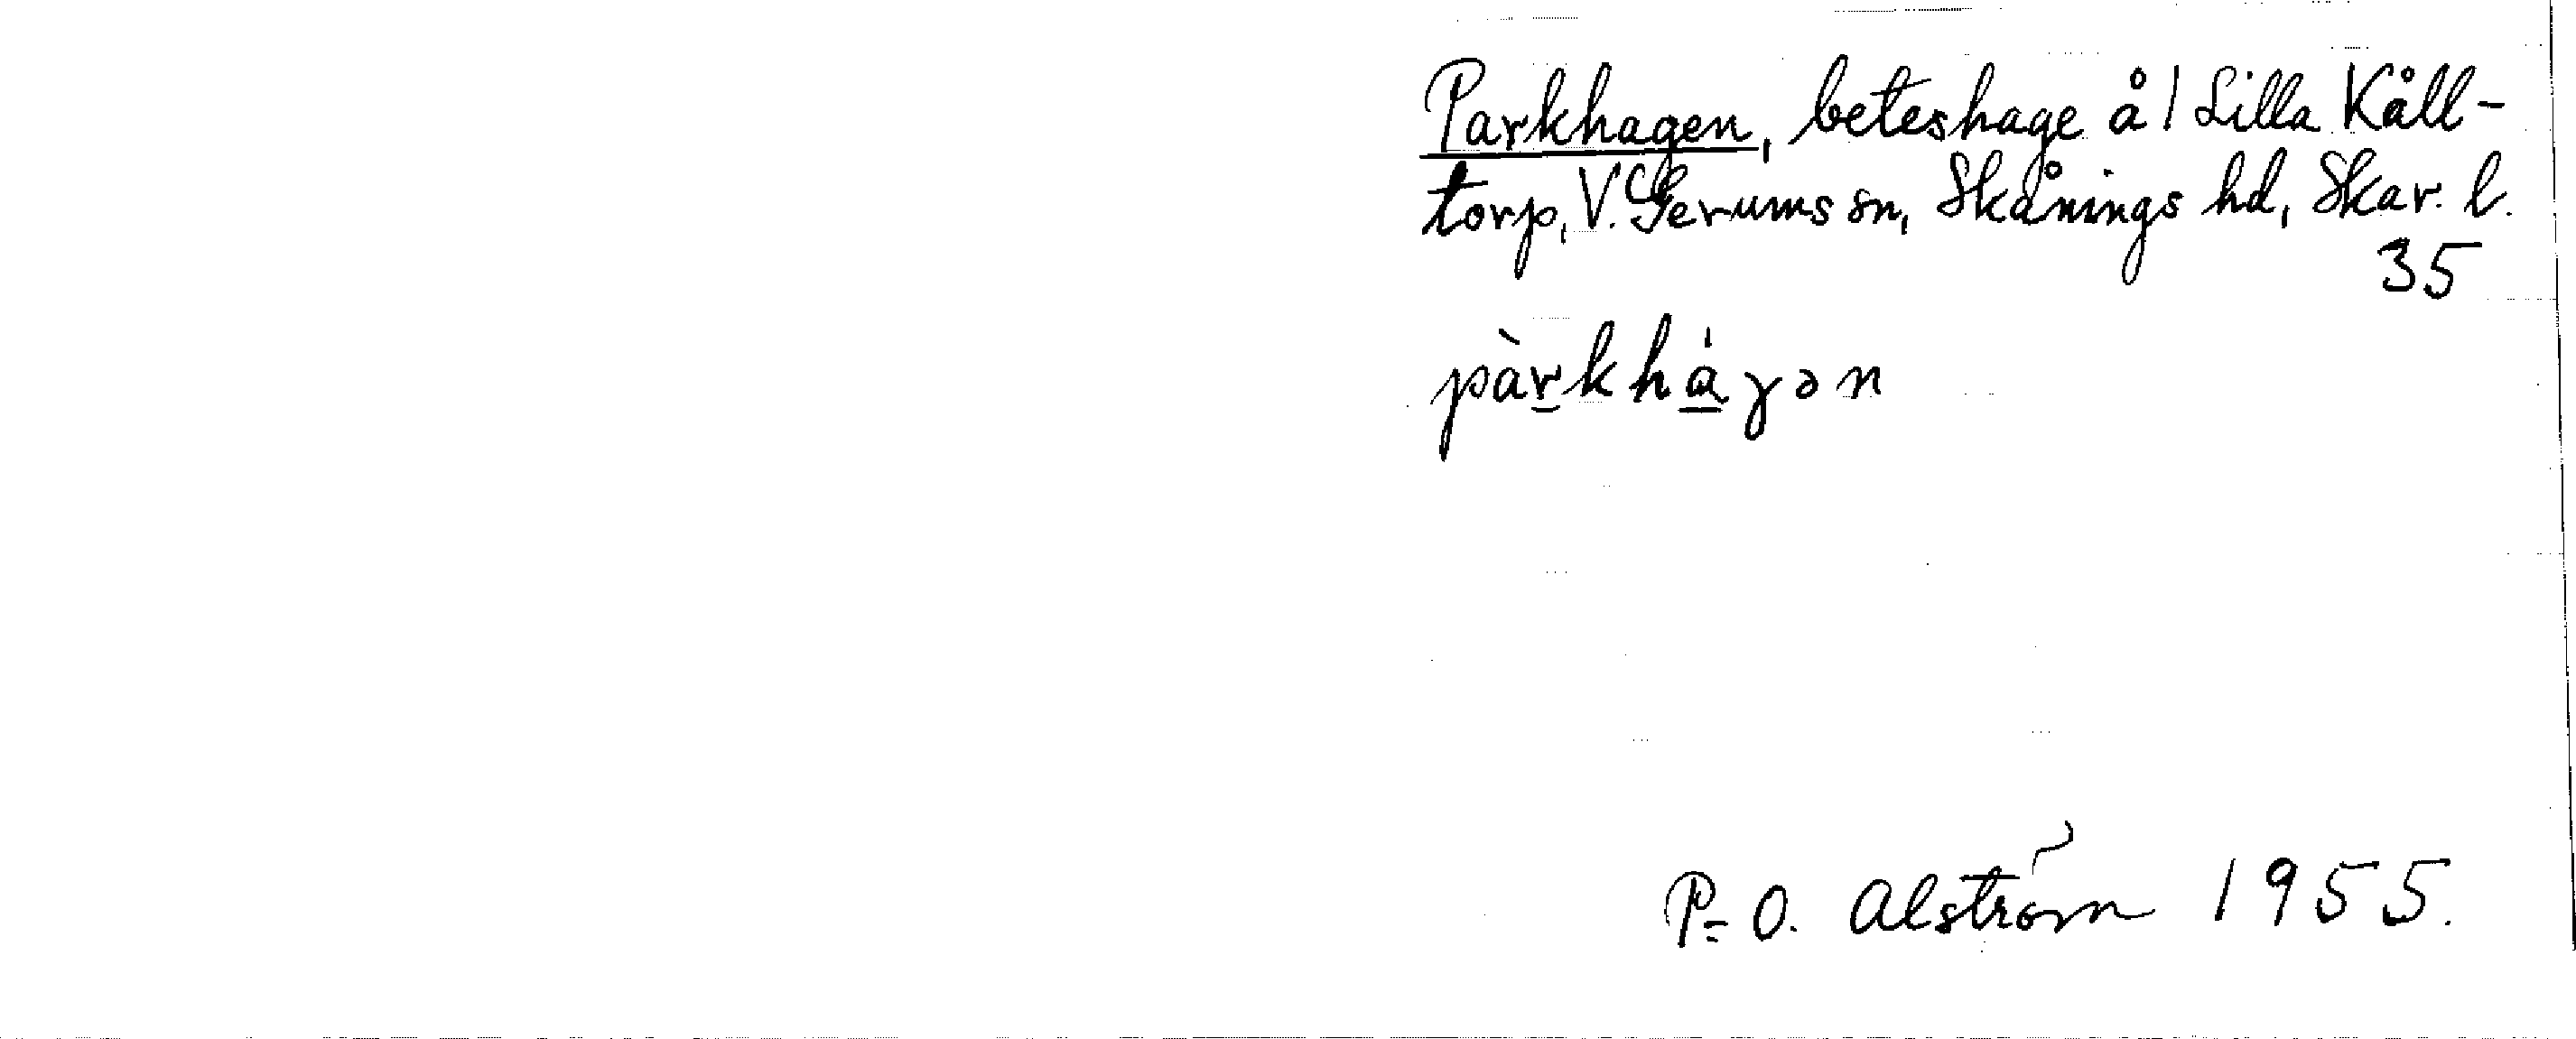 Parkhagen, beteshage å / Lilla Kåll-
torp, V. Gerums sn, Skånings hd, Skar. l.
35
pàrkháɣən
P.-O. Alström 1955.